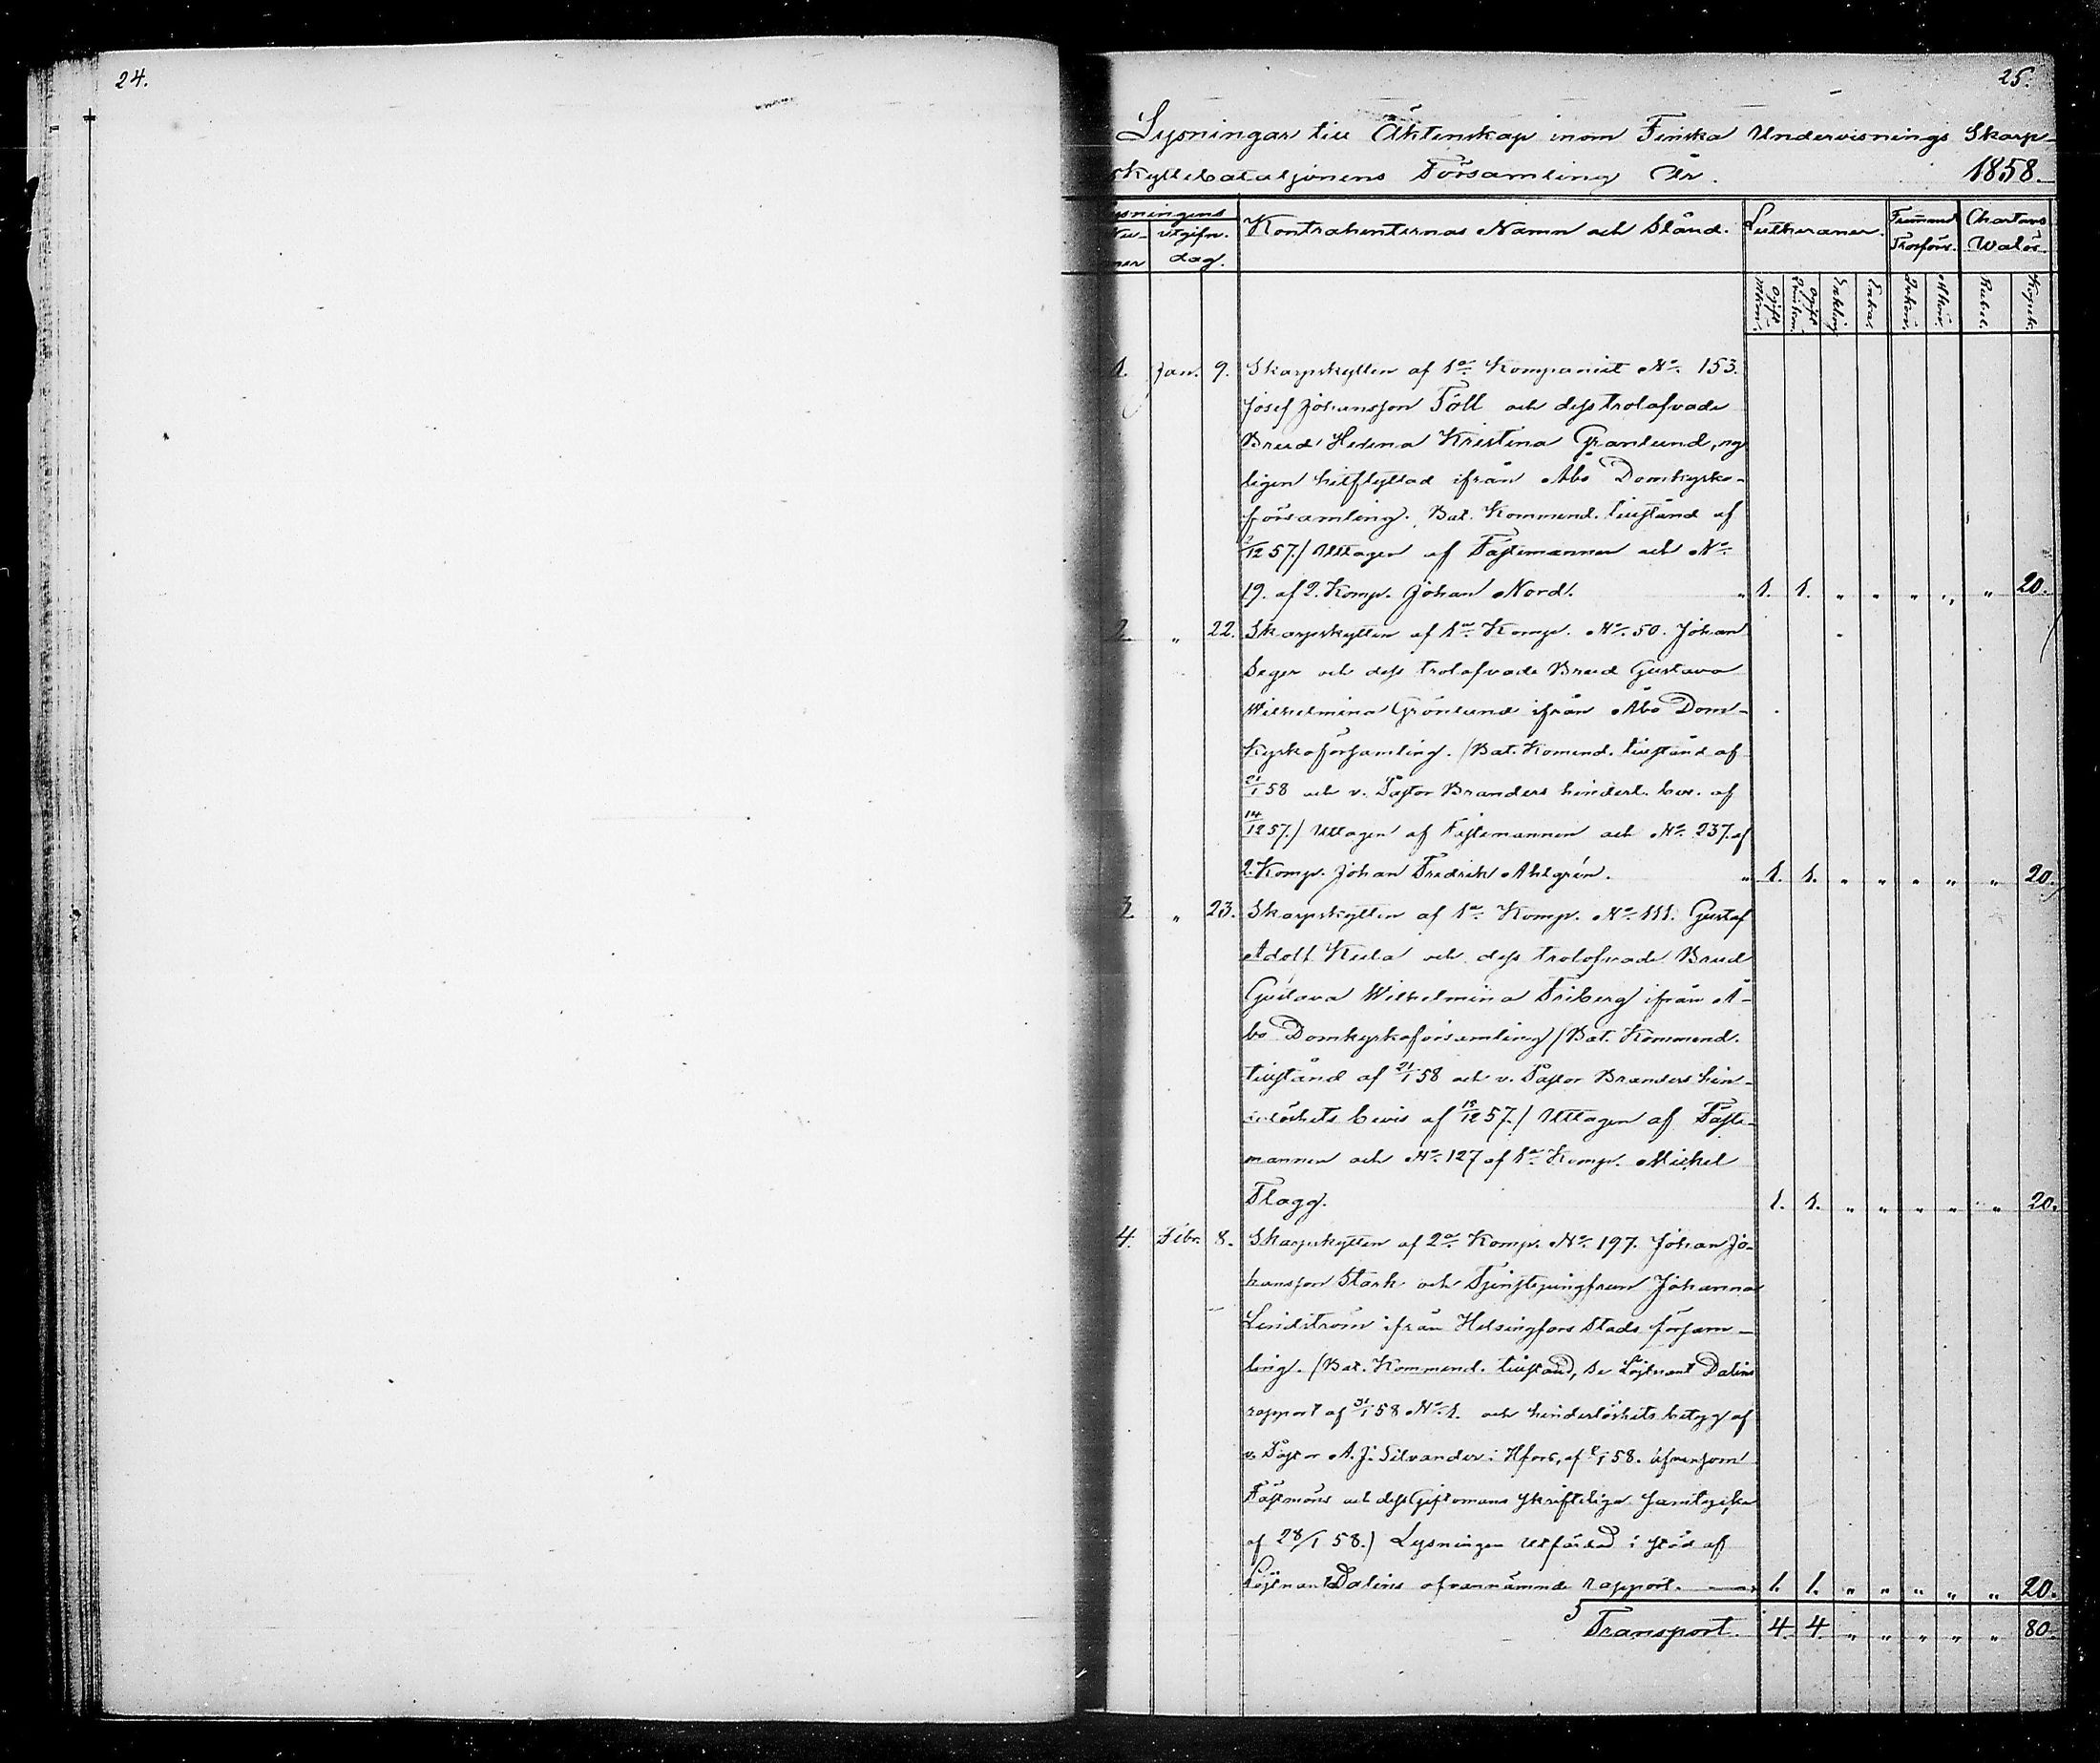 24.
25.
Lysningar till Äktenskap inom Finska Undervisnings Skarp-
skyttebataljonens Församling År. 1858.
Lysningens Kontrahenternas Namn och Stånd. Lutheraner. Främmand Chartans
Nu- utgifn. Trosförv. Walör.
mer dag.
Ogift Mskön. Ogift Qvinkön. Enkling Enka. Mskön. Rubel. Kopek.
1. Jan. 9. Skarpskytten af 1a Kompaniet No. 153.
Josef Johansson Töll och dess trolofvade
Brud Helena Kristina Granlund, ny
ligen hitflyttad ifrån Åbo Domkyrko-
församling. Bat. Kommend. tillstånd af
2/12 57./ Uttagen af Fästemannen och No.
19. af 2. Komp. Johan Nord. 1. 1. " " " " " 20.
2 " 22. Skarpskytten af 1a Komp. No. 50. Johan
Seger och dess trolofvade Brud Gustava
Wilhelmina Grönlund ifrån Åbo Dom-
kyrkoförsamling. (Bat. Komend. tillstånd af
21/1 58 och v. Pastor Branders hinderl. bev. af
14/12 57./ Uttagen af Fästemannen och No. 237. af
2. Komp. Johan Fredrik Ahlgrén. " 1. 1. " " " " " 20.
3. " 23. Skarpskytten af 1a Komp. No. 111. Gustaf
Adolf Kula och dess trolofvade Brud
Gustava Wilhelmina Friberg ifrån Å-
bo Domkyrkoförsamling/ Bat. Kommend.
tillstånd af 21/1 58 och v. Pastor Branders hin-
derlöshets bevis af 57./ Uttagen af Fäste-
mannen och No. 127 af 1a Komp. Mickel
Flagg. 1. 1. " " " " " 20.
4. Febr. 8. Skarpskytten af 2a Komp. No. 197. Johan Jo-
hansson Stark och Tjenstejungfrun Johanna
Lindström ifrån Helsingfors Stads försam-
ling. (Bat. Kommend. tillstånd, Se Löjtnant Dalins
rapport af 31/1 58 No. 1. och hinderlöshets betyg af
v. Pastor A. J. Silvander i Hfors, af 58. äfvensom
Fästmöns och dess Giftomans skriftliga samtycke
af 28/1 58.) Lysningen utfärdad i stöd af
Löjtnant Dalins ofvannämnde rapport. 1. 1. " " " " " 20.
Transport. 4. 4. " " " " " 80.